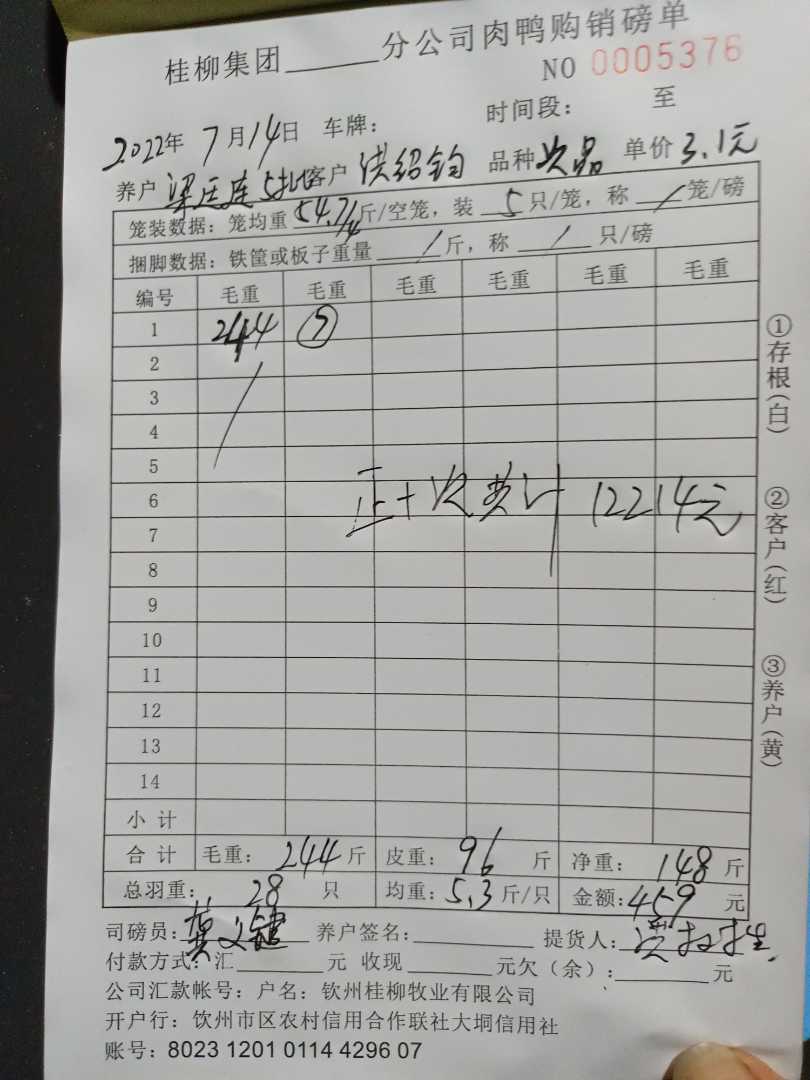 桂柳集团______分公司肉鸭购销磅单
NO 0005376
2022年 7月14日 车牌： 时间段： 至
养户 梁 连 客户 洪绍钧 品种 次品 单价 3.1元
笼装数据：笼均重 斤/空笼，装 5 只/笼，称 / 笼/磅
捆脚数据：铁筐或板子重量 / 斤，称 / 只/磅
编号 毛重 毛重 毛重 毛重 毛重 毛重
1 244 ⑤
2
3
4
5
6 正+次共计 12214元
7
8
9
10
11
12
13
14
小 计
合 计 毛重：244斤 皮重：96 斤 净重：148斤
总羽重：28 只 均重：5.3斤/只 金额：459元
司磅员： 养户签名：________ 提货人：
付款方式：汇______元 收现______元欠（余）：______元
公司汇款帐号：户名：钦州桂柳牧业有限公司
开户行：饮州市区农村信用合作联社大垌信用社
账号：8023 1201 0114 4296 07
①存根(白)
②客户(红)
③养户(黄)